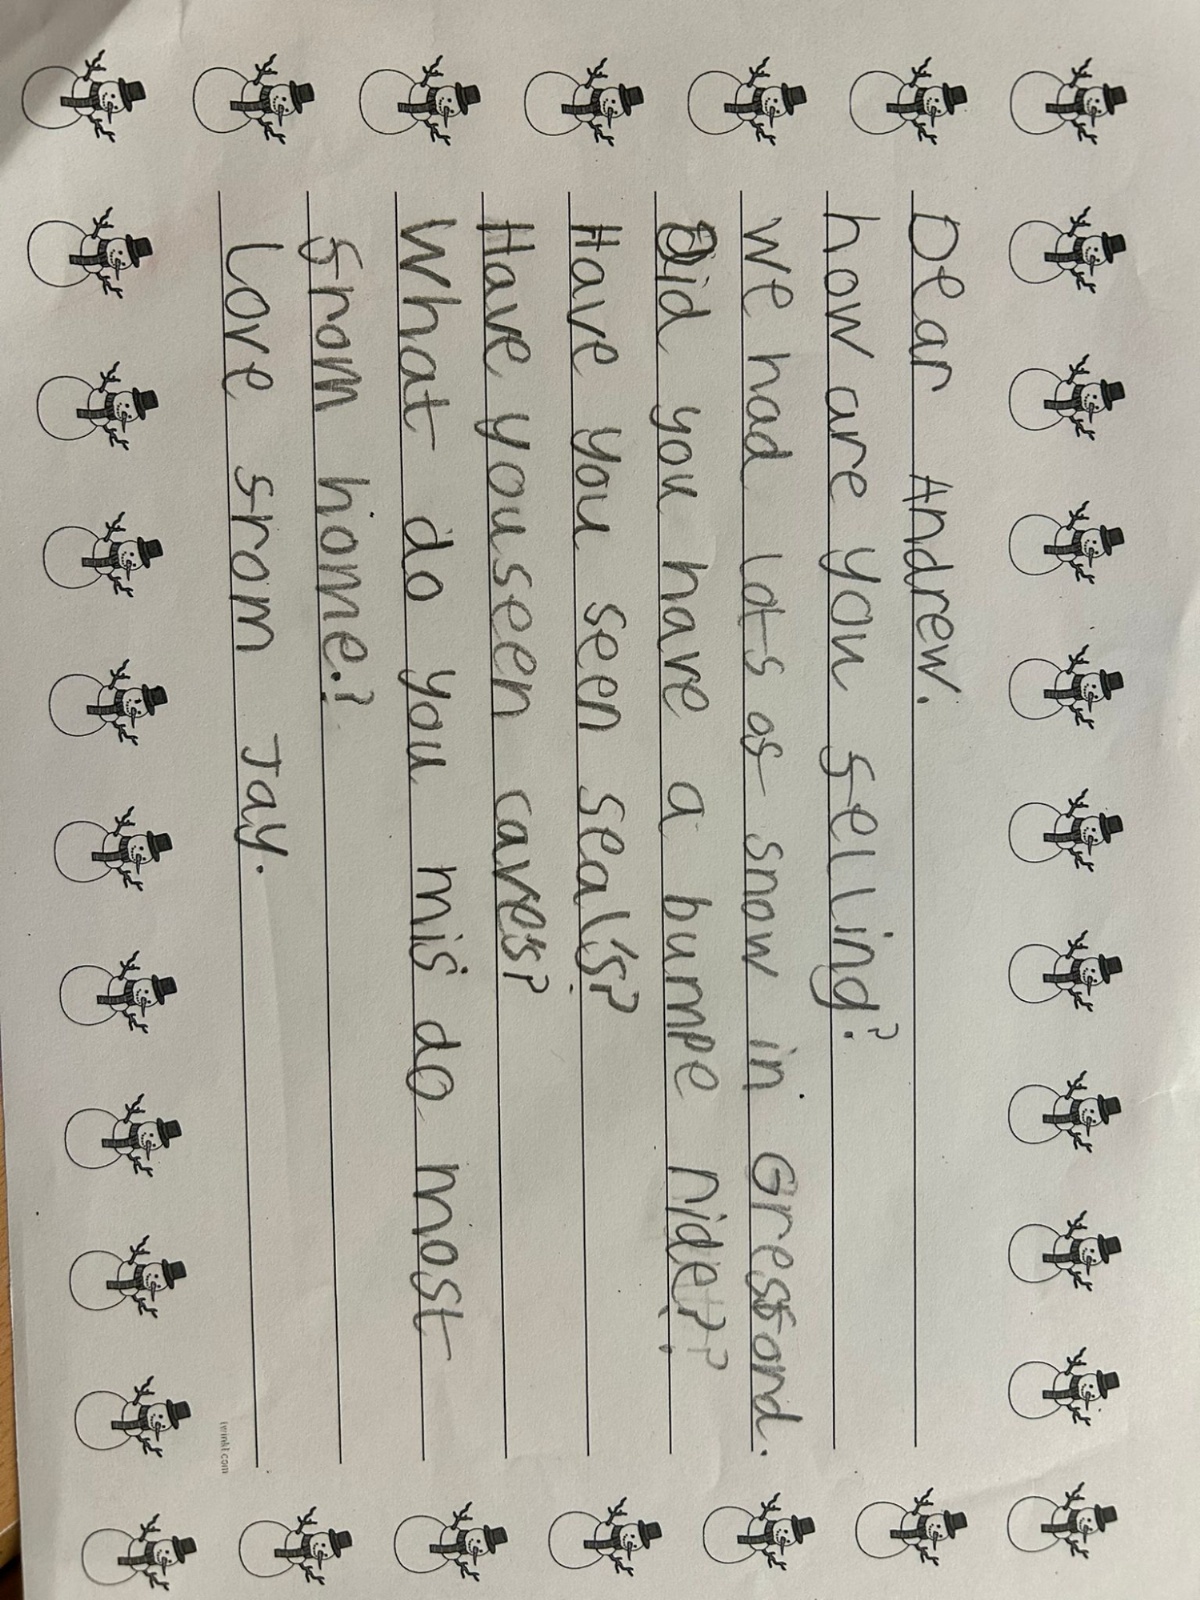 Dear Andrew.
how are you felling?
we had lots of snow in Gresford.
Did you have a bumpe ride??
Have you seen seal's?
Have you seen caves?
What do you mis do most
from home.?
Love from Jay.
twinkl.com